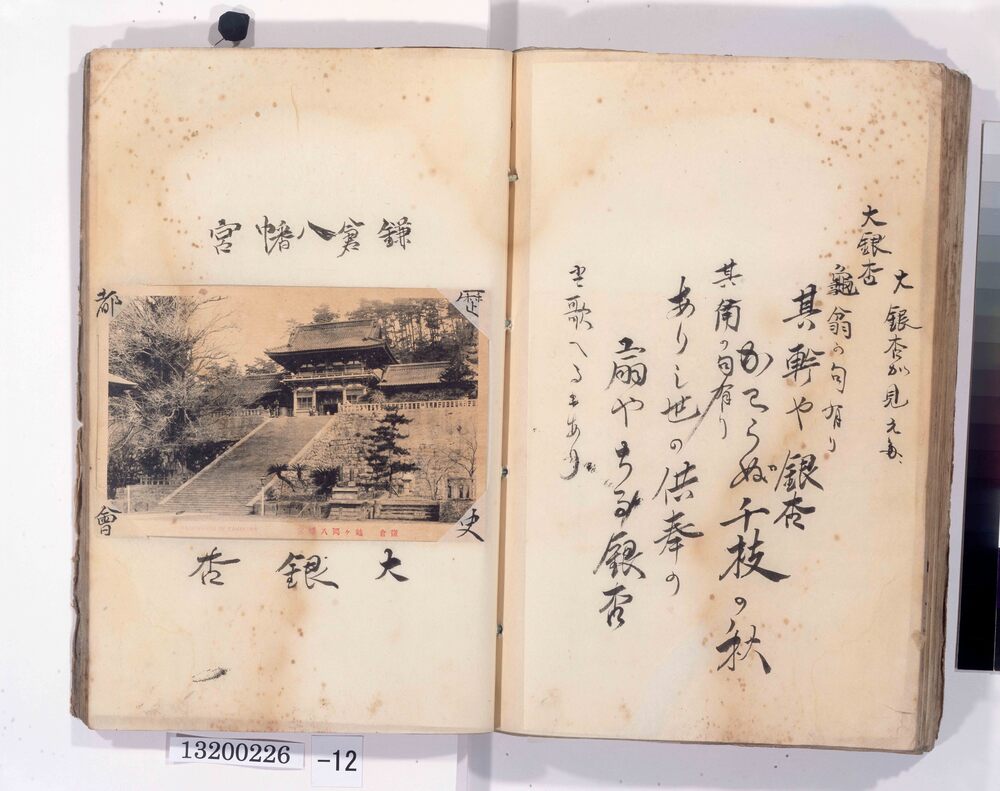 大銀杏が見えた、
大銀杏
龜翁の句有り
其軒や銀杏
かこらぬ千枝の秋
其角の句有り
ありし世の供奉の
扇やちる銀杏
歌へる
鎌倉八幡宮
歴史
都會
鎌倉 鶴ヶ岡八幡宮
大銀杏
13200226
-12